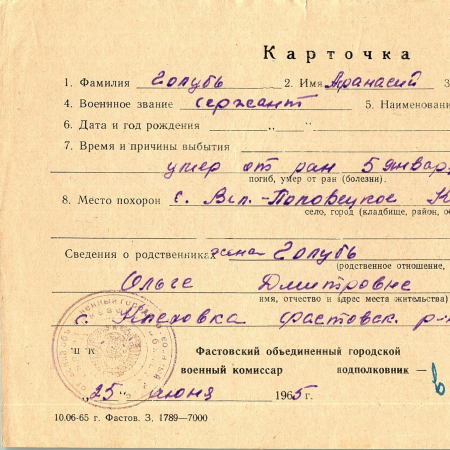 Карточка
1. Фамилия Голубь 2. Имя Афанасий 3
4. Военное звание сержант 5. Наименовани
6. Дата и год рождения „ “
7. Время и причины выбытия
умер от ран 5 январ
погиб, умер от ран (болезни).
8. Место похорон с. Вел.-Половецкое К
село, город (кладбище, район, об
Сведения о родственниках жена Голубь
(родственное отношение,
Ольге Дмитровне
имя, отчество и адрес места жительства)
с. Фастовск. р-н
М. П. Фастовский объединенный городской
военный комиссар подполковник —
„25“ июня 1965г.
10.06-65 г. Фастов. З, 1789—7000